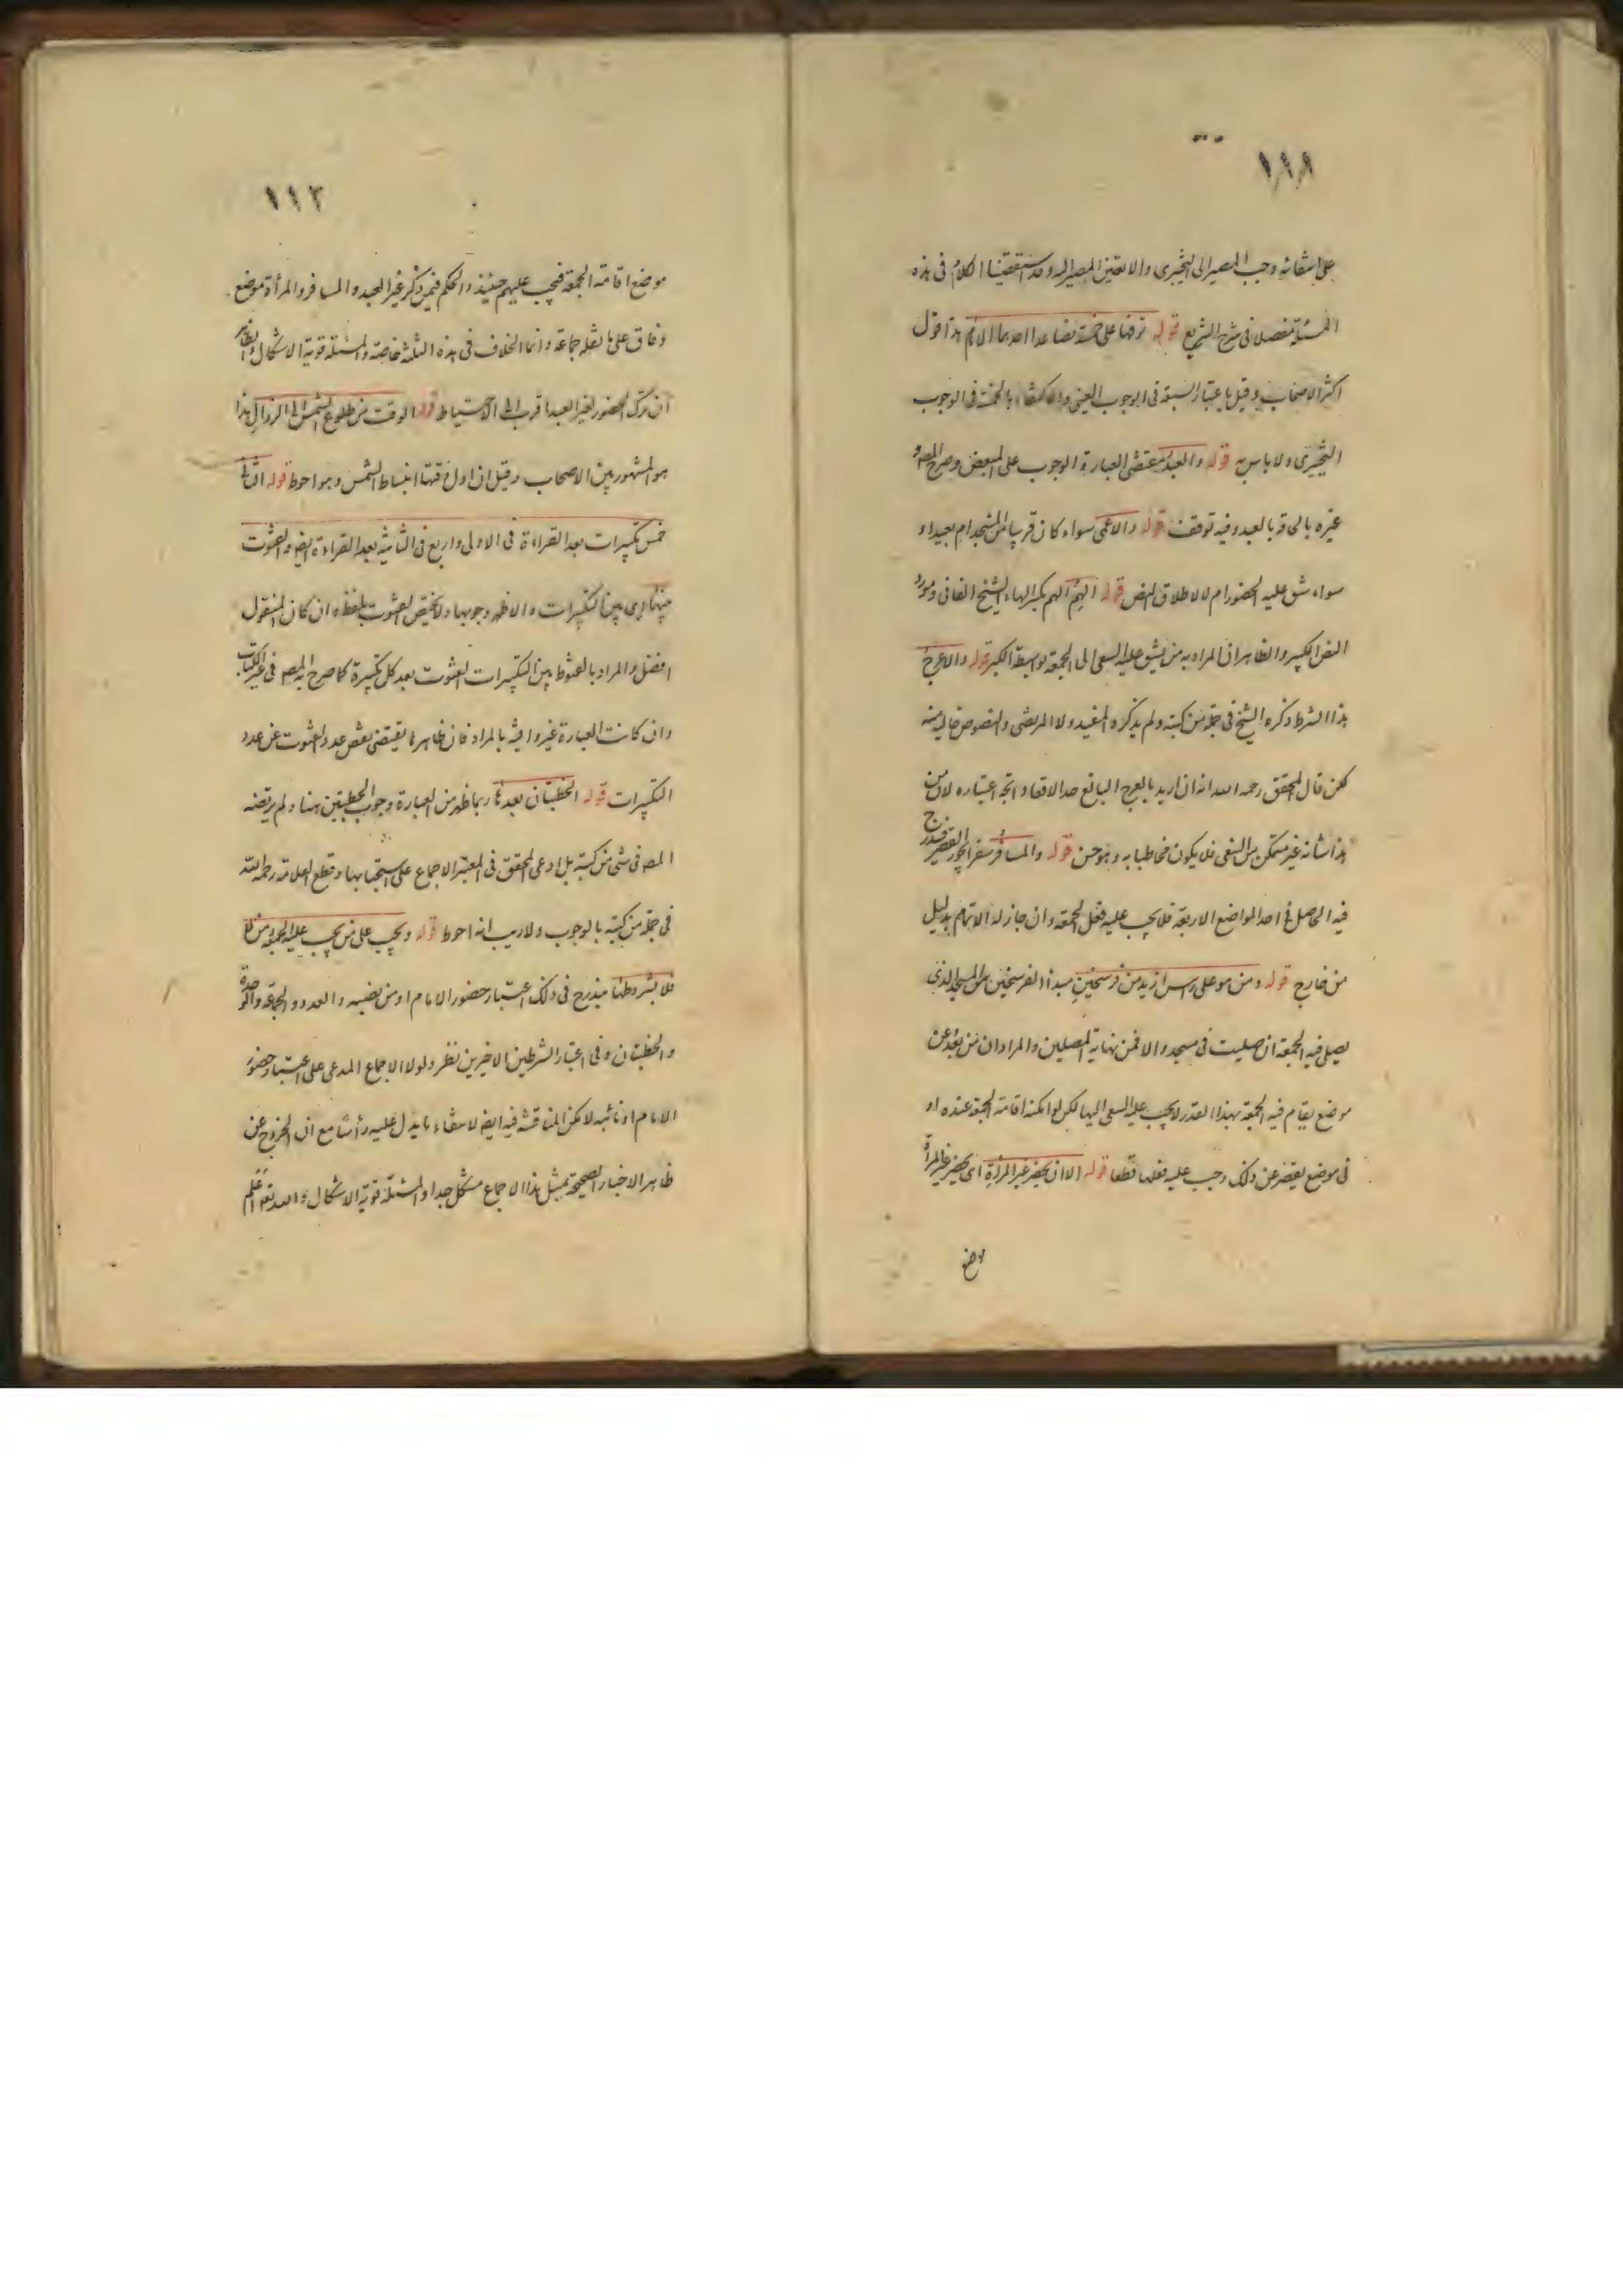 ١١٨
على انتفائه وجب المصير الى التخييرى والا تعين المصير اليه وقد استقصينا الكلام فى هذه
المسئلة مفصلا فى شرح الشرايع قوله توقفها على خمسة فصاعدا احدهما الامام هذا قول
اكثر الاصحاب وقيل باعتبار السبعة فى الوجوب العينى والاكتفاء بالخمسة فى الوجوب
التخييرى ولا باس به قوله والعبد مقتضى العبارة الوجوب على المبعض وصرح المصه و
غيره بالحاقه بالعبد وفيه توقف قوله والاعمى سواء كان قريبا من المسجد ام بعيدا و
سواء شق عليه الحضور ام لا لاطلاق النص قوله الهم الهم بكسر الهاء الشيخ الفانى ومورد
النص الكبير والظاهر ان المراد به من يشق عليه السعى الى الجمعة بواسطة الكبر قوله والاعرج
هذا الشرط ذكره الشيخ فى جملة من كتبه ولم يذكره المفيد ولا المرتضى والنصوص خالية منه
لكن قال المحقق رحمه الله انه ان اريد بالعرج البالغ حد الاقعاد اتجه اعتباره لان من
هذا شانه غير متمكن من السعى فلا يكون مخاطبا به وهو حسن قوله والمسافر سفرا يجوز القصر فيندرج
فيه الحاصل فى احد المواضع الاربعة فلا يجب عليه فعل الجمعة وان جاز له الاتمام بدليل
من خارج قوله ومن هو على راس ازيد من فرسخين مبدأ الفرسخين من المسجد الذى
يصلى فيه الجمعة ان صليت فى مسجد والا فمن نهاية المصلين والمراد ان من بعد عن
موضع يقام فيه الجمعة بهذا القدر لا يجب عليه السعى اليها لكن لو امكنه اقامة الجمعة عنده او
فى موضع يقصر عن ذلك وجب عليه فعلها قطعا قوله الا ان يحضر غير المرأة اى يحضر غير المرأة
موضع
١١٢
موضع اقامة الجمعة فيجب عليهم حينئذ والحكم فيمن ذكر غير العبد والمسافر والمرأة موضع
وفاق على ما نقله جماعة وانما الخلاف فى هذه الثلثة خاصة والمسئلة قوية الاشكال والظاهر
ان ترك الحضور لغير العبد اقرب الى الاحتياط قوله الوقت من طلوع الشمس الى الزوال هذا
هو المشهور بين الاصحاب وقيل ان اول وقتها انبساط الشمس وهو احوط قوله الثالث
خمس تكبيرات بعد القراءة فى الاولى واربع فى الثانية بعد القراءة ايضا والقنوت
بينها اى بين التكبيرات والاظهر وجوبها ولا يختص القنوت بلفظ وان كان المنقول
افضل والمراد بالقنوت بين التكبيرات القنوت بعد كل تكبيرة كما صرح به المصه فى غير الكتاب
وان كانت العبارة غير وافية بالمراد فان ظاهرها يقتضى نقص عدد القنوت عن عدد
التكبيرات قوله الخطبتان بعدها ربما ظهر من العبارة وجوب الخطبتين هنا ولم يرتضه
المصه فى شئ من كتبه بل ادعى المحقق فى المعتبر الاجماع على استحبابها وقطع العلامة رحمه الله
فى جملة من كتبه بالوجوب ولا ريب انه احوط قوله ويجب على من يجب عليه الجمعة ومن لا
فلا بشروطها يندرج فى ذلك اعتبار حضور الامام او من نصبه والعدد والجماعة والوحدة
والخطبتان وفى اعتبار الشرطين الاخيرين نظر ولولا الاجماع المدعى على اعتبار حضور
الامام او نائبه لامكن المناقشة فيه ايضا لانتفاء ما يدل عليه رأسا مع ان الخروج عن
ظاهر الاخبار الصحيحة بمثل هذا الاجماع مشكل جدا والمسئلة قوية الاشكال والله تعالى اعلم